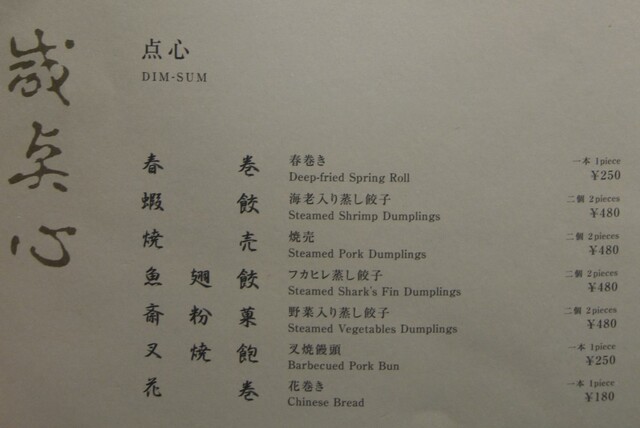 鹹点心
点心
DIM-SUM
春巻 春巻き 一本 1piece
Deep-fried Spring Roll ¥250
蝦餃 海老入り蒸し餃子 二個 2pieces
Steamed Shrimp Dumplings ¥480
焼売 焼売 二個 2pieces
Steamed Pork Dumplings ¥480
魚翅餃 フカヒレ蒸し餃子 二個 2pieces
Steamed Shark's Fin Dumplings ¥480
斎粉菓 野菜入り蒸し餃子 二個 2pieces
Steamed Vegetables Dumplings ¥480
叉焼飽 叉焼饅頭 一本 1piece
Barbecued Pork Bun ¥250
花巻 花巻き 一本 1piece
Chinese Bread ¥180